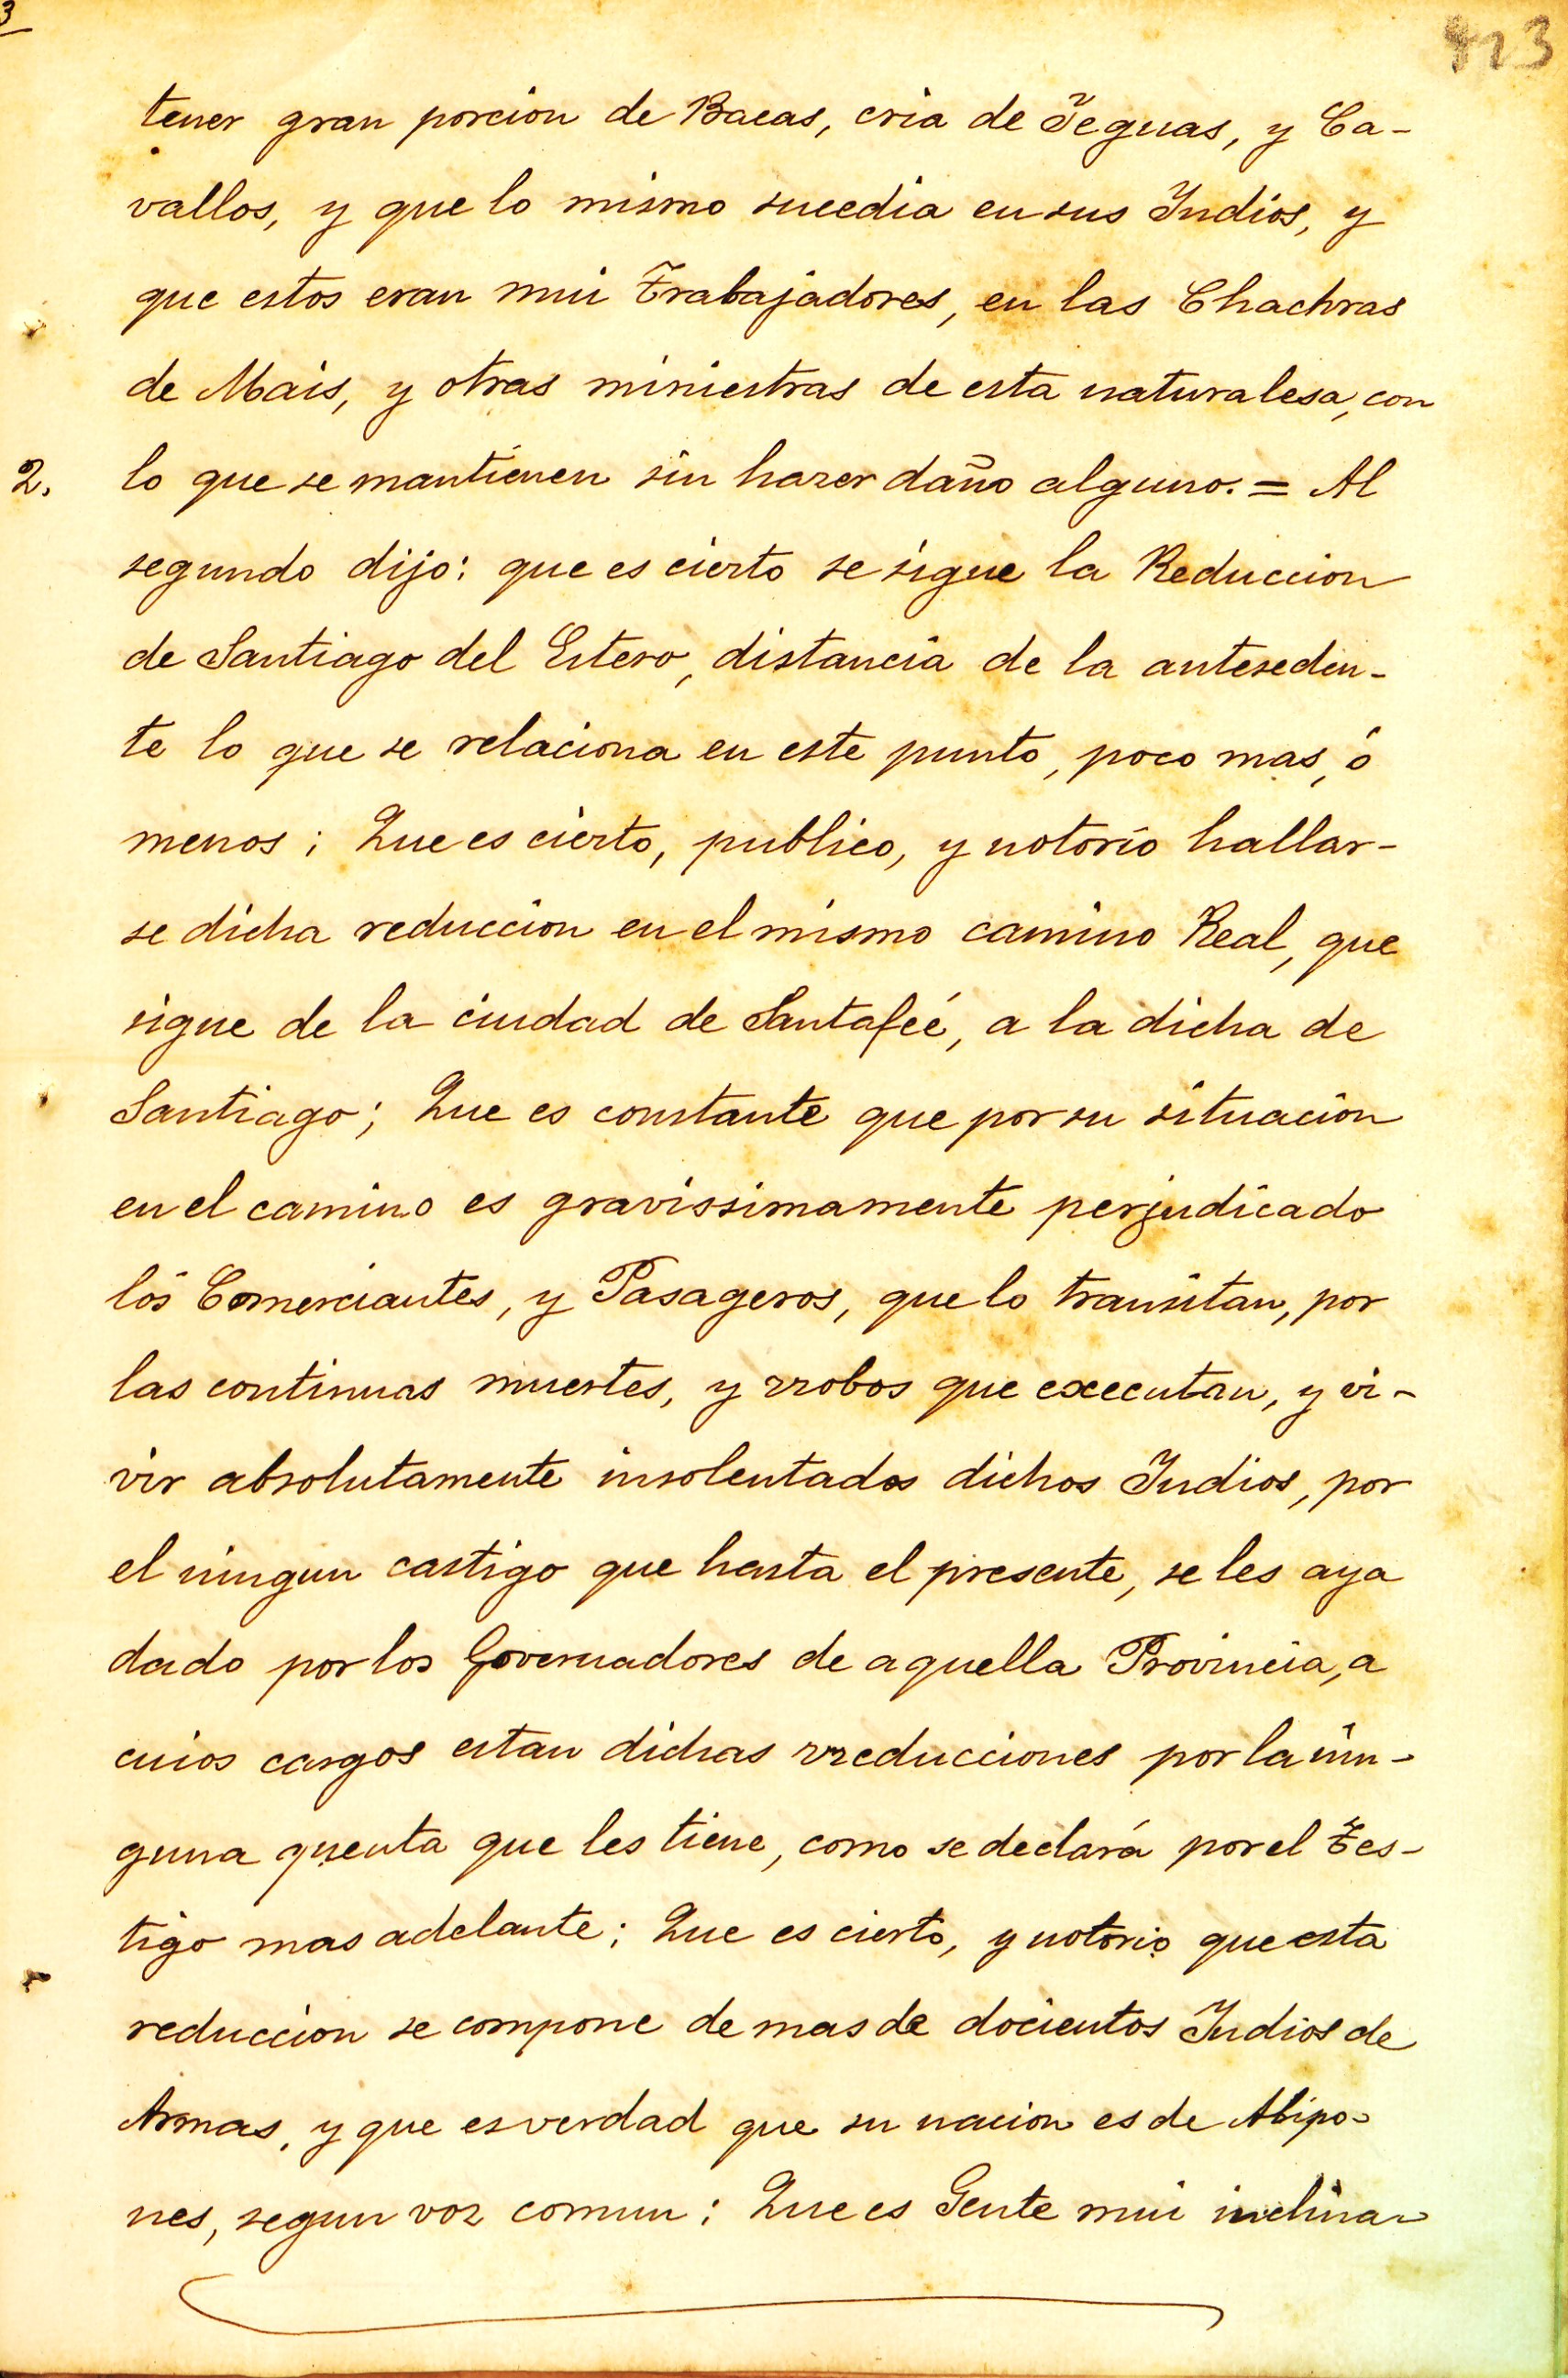 3
423
tener gran porcion de Bacas, cria de Yeguas, y Ca-
vallos, y que lo mismo sucedia en sus Indios, y
que estos eran mui Trabajadores, en las Chachras
de Mais, y otras miniestras de esta naturalesa, con
2. lo que se mantienen sin hazer daño alguno. = Al
segundo dijo: que es cierto se sigue la Reduccion
de Santiago del Estero, distancia de la anteseden-
te lo que se relaciona en este punto, poco mas, ó
menos; Que es cierto, publico, y notorio hallar-
se dicha reduccion en el mismo camino Real, que
sigue de la ciudad de Santafeé, a la dicha de
Santiago; Que es constante que por su situacion
en el camino es gravissimamente perjudicado
los Comerciantes, y Pasageros, que lo transitan, por
las continuas muertes, y rrobos que executan, y vi-
vir absolutamente insolentados dichos Indios, por
el ningun castigo que hasta el presente, se les aya
dado por los Governadores de aquella Provincia, a
cuios cargos estan dichas rreducciones por la nin-
guna quenta que les tiene, como se declará por el Tes-
tigo mas adelante; Que es cierto, y notorio que esta
reduccion se compone de mas de docientos Indios de
Armas, y que es verdad que su nacion es de Abipo-
nes, segun voz comun: Que es Gente mui inclina-